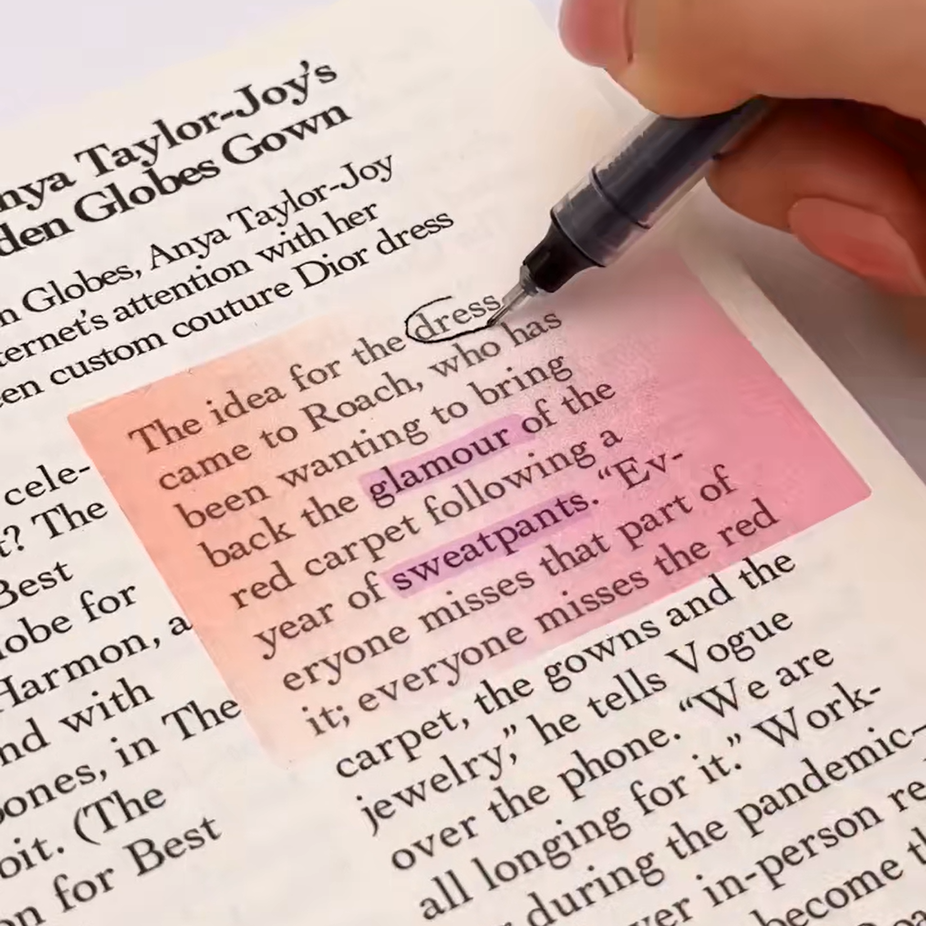 Taylor-Joy's
Globes Gown
Globes, Anya Taylor-Joy
attention with her
custom couture Dior dress
cele-
The
Best
for
Harmon, a
with
in The
(The
for Best
The idea for the dress
came to Roach, who has
been wanting to bring
back the glamour of the
red carpet following a
year of sweatpants. “Ev-
eryone misses that part of
it; everyone misses the red
carpet, the gowns and the
jewelry,” he tells Vogue
over the phone. “We are
all longing for it.” Work-
during the pandemic—
in-person
become